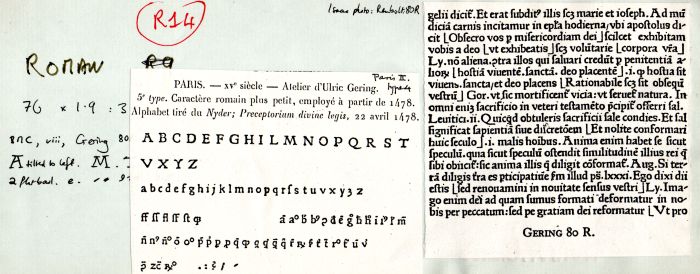 R14
Isaac photo: Renbolt 80R
ROMAN R9
76 × 1·9 : 3
BNC, viii, Gering 80
A tilted to left. M.
PARIS. — XVᵉ siècle — Atelier d'Ulric Gering.
Paris II.
type 4
5ᵉ type. Caractère romain plus petit, employé à partir de 1478.
Alphabet tiré du Nyder; Preceptorium divine legis, 22 avril 1478.
A B C D E F G H I L M N O P Q R S T
V X Y Z
a b c d e f g h i j k l m n o p q r ſ s t u v x y z 3
. : ? / -
gelii dicit̄. Et erat subdit⁹ illis scʒ marie et ioseph. Ad mū
diciā carnis incitamur in epl̄a hodierna; vbi apostolus di
cit ⌊Obsecro vos p misericordiam dei ⌋scilcet exhibitam
vobis a deo ⌊vt exhibeatis ⌋scʒ volūtarie ⌊corpora vr̄a⌋
Ly. nō aliena. ptra illos qui saluari credūt p penitentiā a⸗
hoꝝ ⌊hostiā viuentē. sanctā. deo placentē ⌋.i. ꝙ hostia sit
viuens. sancta; et deo placens ⌊Rationabile scʒ sit obsequiū
vestrū⌋ Gor. vt sic mortificent̄ vicia: vt seruet̄ natura. In
omni eniʒ sacrificio in veteri testamēto p̄cipit̄ offerri sal.
Leuitici. ii. Quicqd obtuleris sacrificii sale condies. Et sal
significat sapientiā siue discretōem ⌊Et nolite conformari
huic seculo ⌋.i. malis hoibus. Anima enim habet se sicut
speculū. qua sicut speculū ostendit similitudinē illius rei q̄
sibi obiicit̄: sic anima illis q̄ diligit cōformat̄. Aug. Si ter
rā diligis t̄ra es pticipatiue fm illud ps̄. lxxxi. Ego dixi dii
estis ⌊sed renouamini in nouitate sensus vestri ⌋Ly. Ima⸗
go enim dei ad quam sumus formati deformatur in no⸗
bis per peccatum: sed pe gratiam dei reformatur ⌊Vt pro
GERING 80 R.